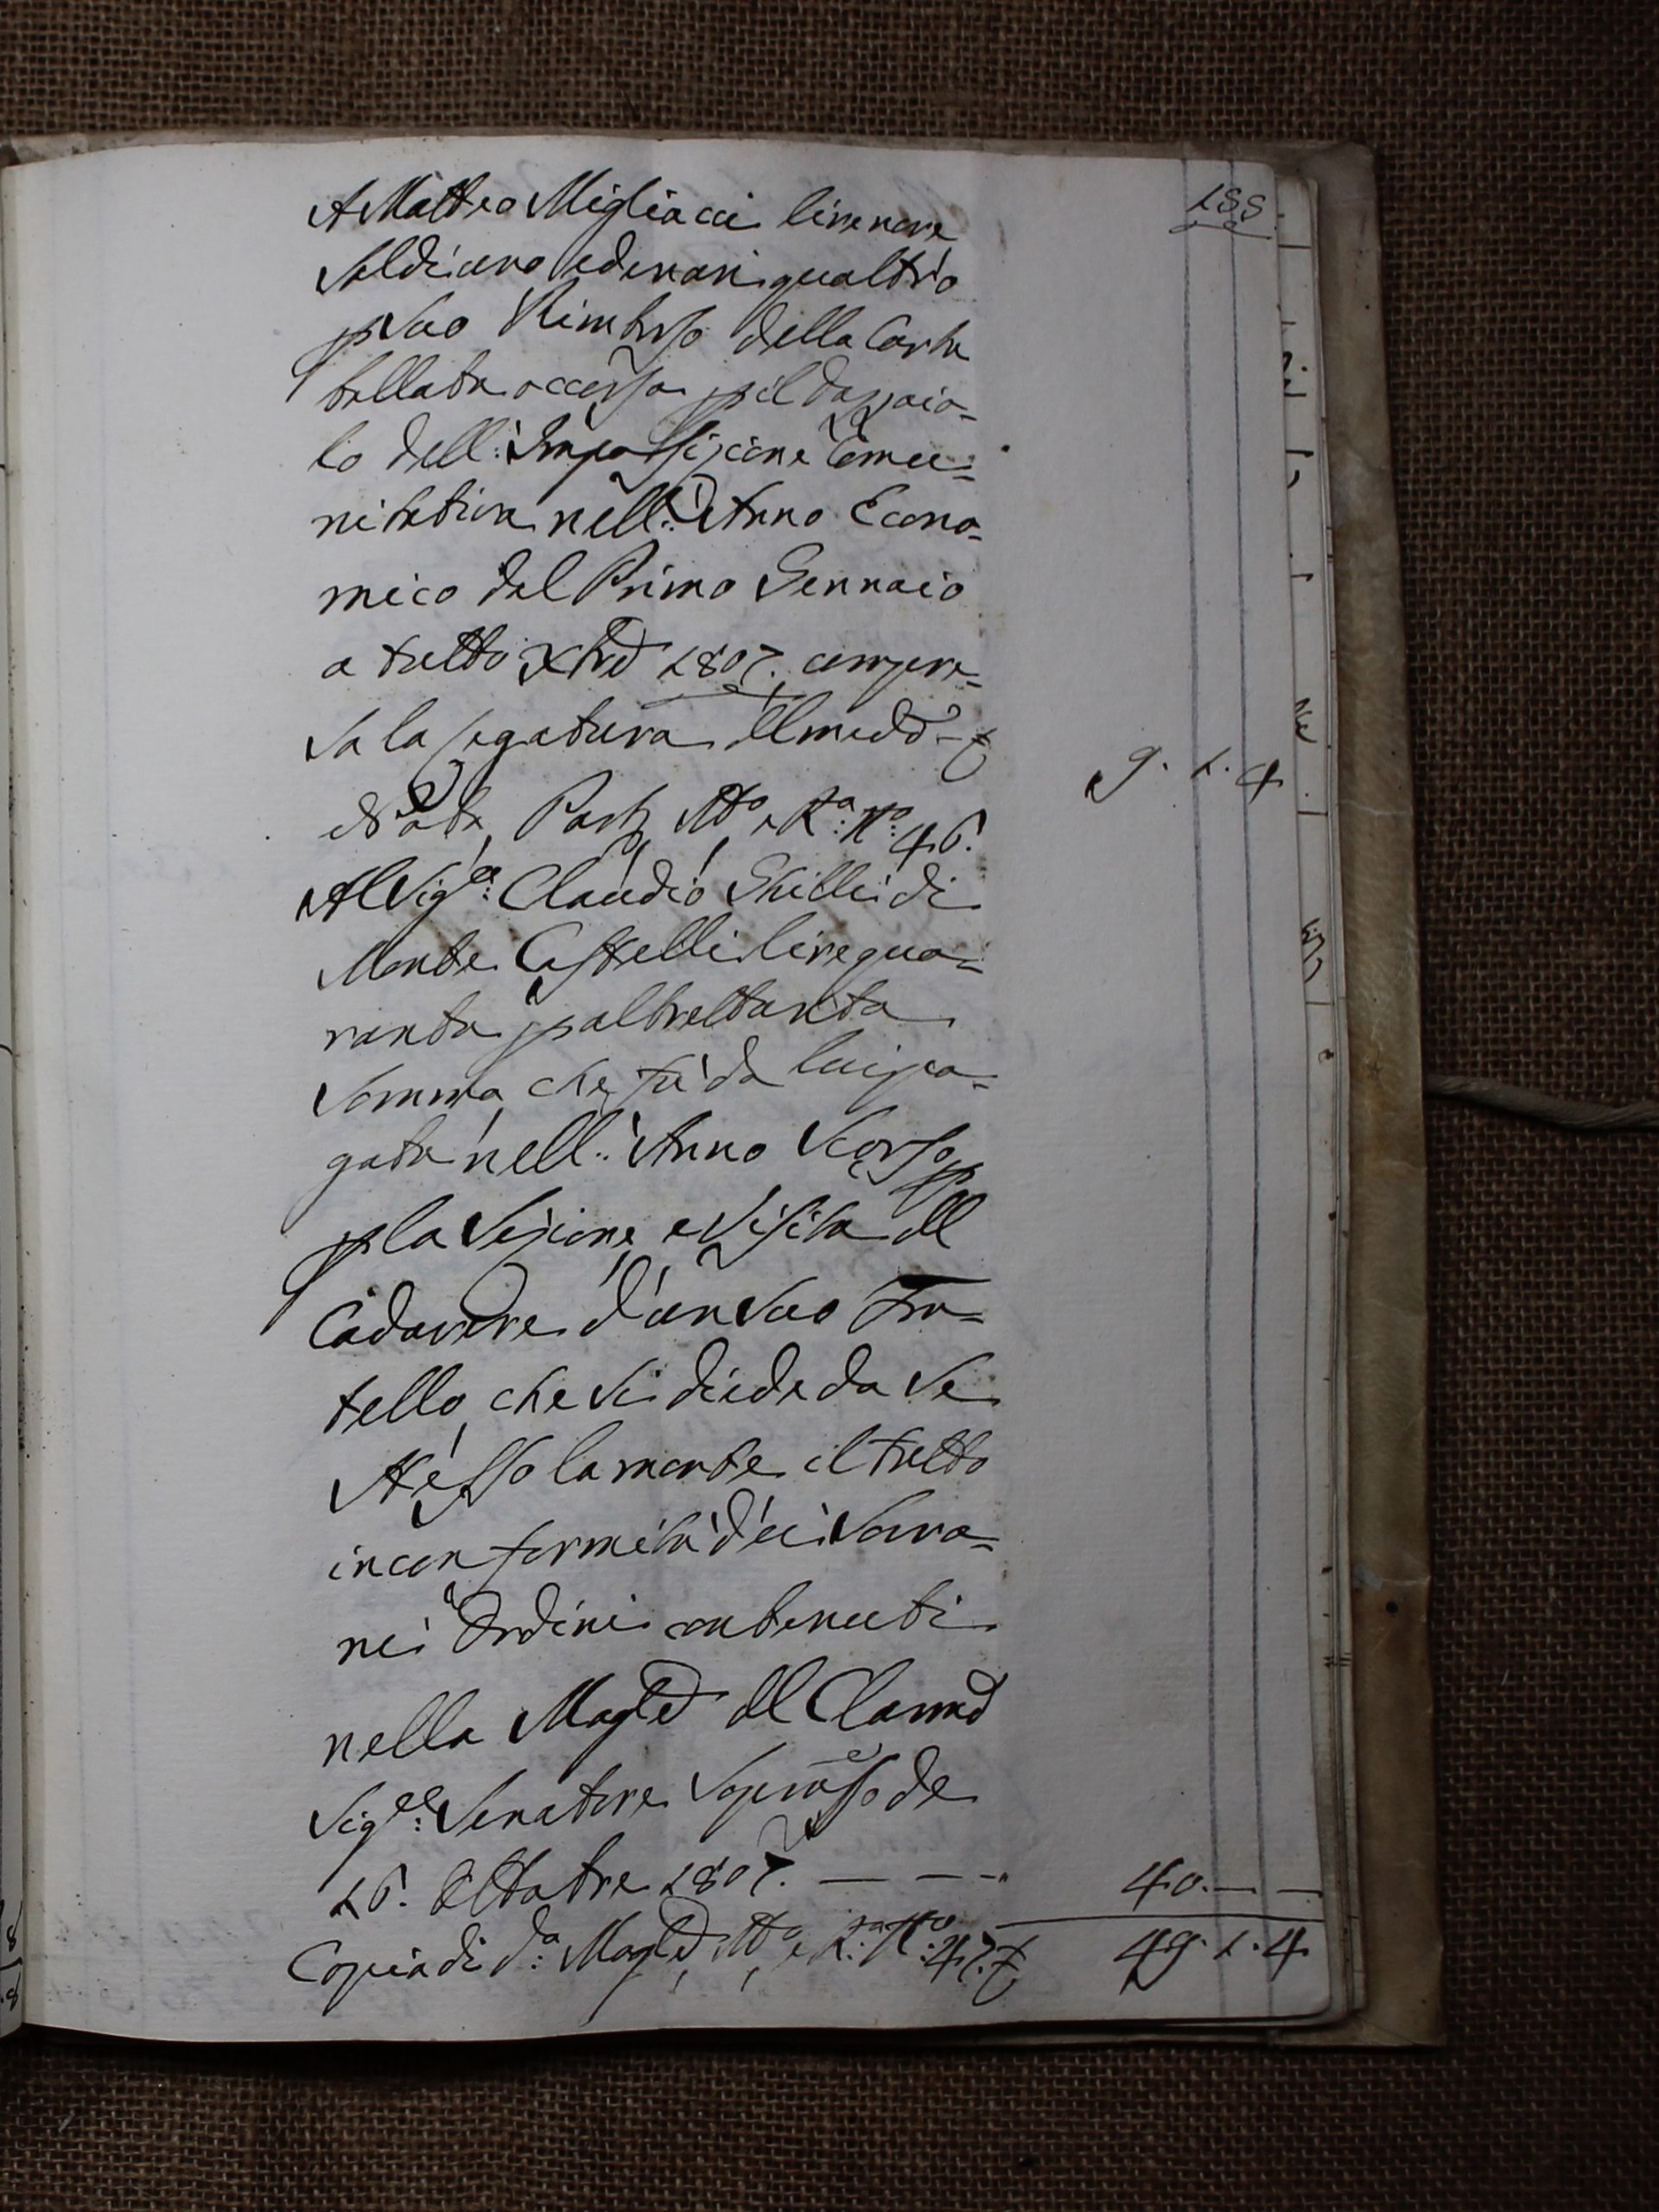 155.
A Matteo Migliacci lire nove
Soldi uno e denari quattro
p Suo Rimborso della Carta
bollata occorsa p il Dazzaio=
lo dell: Imposizione Comu=
nitativa nell: Anno Econo=
mico del Primo Gennaio
a tutto Xbre 1807. compre=
sa la legatura del medo
9. 1. 4
Nota, Parta Atto, Ra: No: 46.
Al Sigre: Claudio Ghilli di
Monte Castelli lire qua=
ranta p altrettanta
Somma che fù da lui pa=
gata nell: Anno Scorso p
p la Sezione, e Visita del
Cadavere d'un Suo Fra=
tello, che si diede da Se
Stesso la morte il tutto
in conformità dei Sovra=
ni Ordini contenuti
nella Magle del Clarmo
Sigre: Senatore Sopraso de
16. Ottobre 1807. — — -
40. — —
Copia di da: Magle, Atto, Ra: No: 47.
49. 1. 4